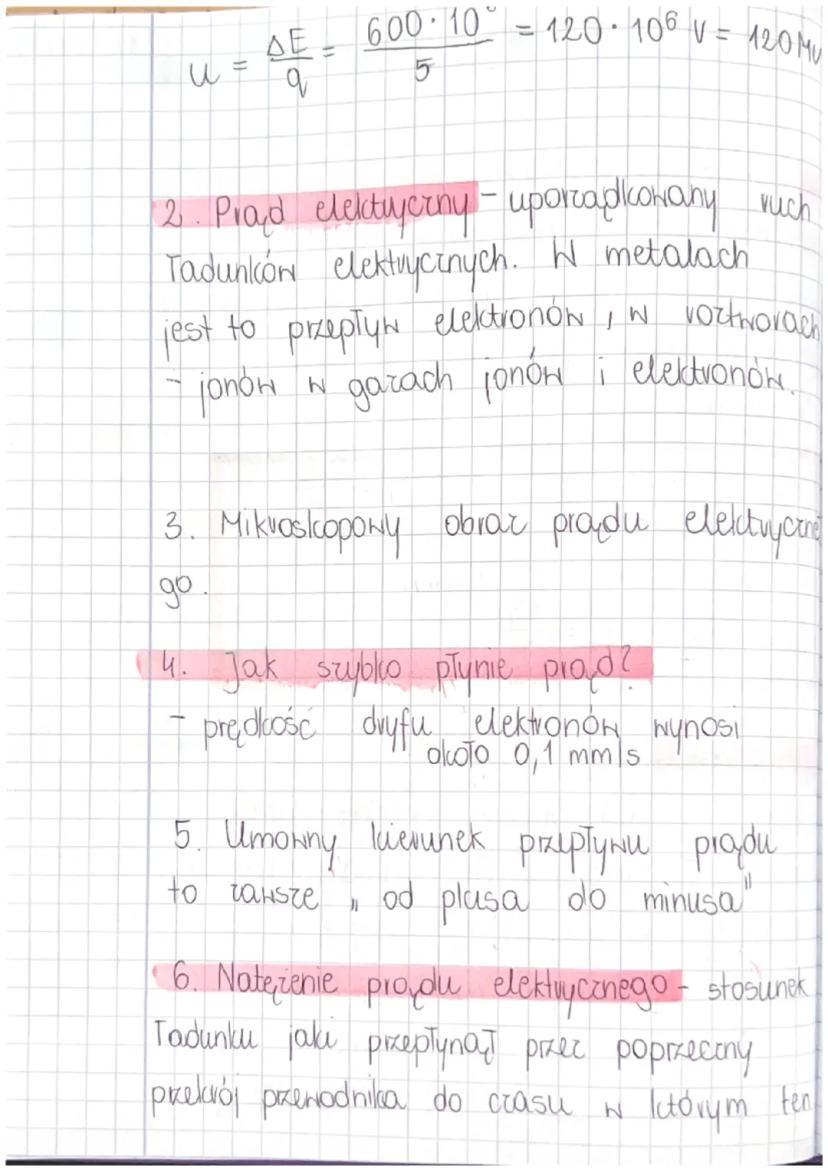 u = ΔE/q = 600·10⁶/5 = 120·10⁶ V = 120 MV
2. Prąd elektryczny - uporządkowany ruch
ładunków elektrycznych. W metalach
jest to przepływ elektronów, w roztworach
- jonów w gazach jonów i elektronów.
3. Mikroskopowy obraz prądu elektryczne
go.
4. Jak szybko płynie prąd?
- prędkość dryfu elektronów wynosi
około 0,1 mm/s
5. Umowny kierunek przepływu prądu
to zawsze „od plusa do minusa"
6. Natężenie prądu elektrycznego - stosunek
ładunku jaki przepłynął przez poprzeczny
przekrój przewodnika do czasu w którym ten